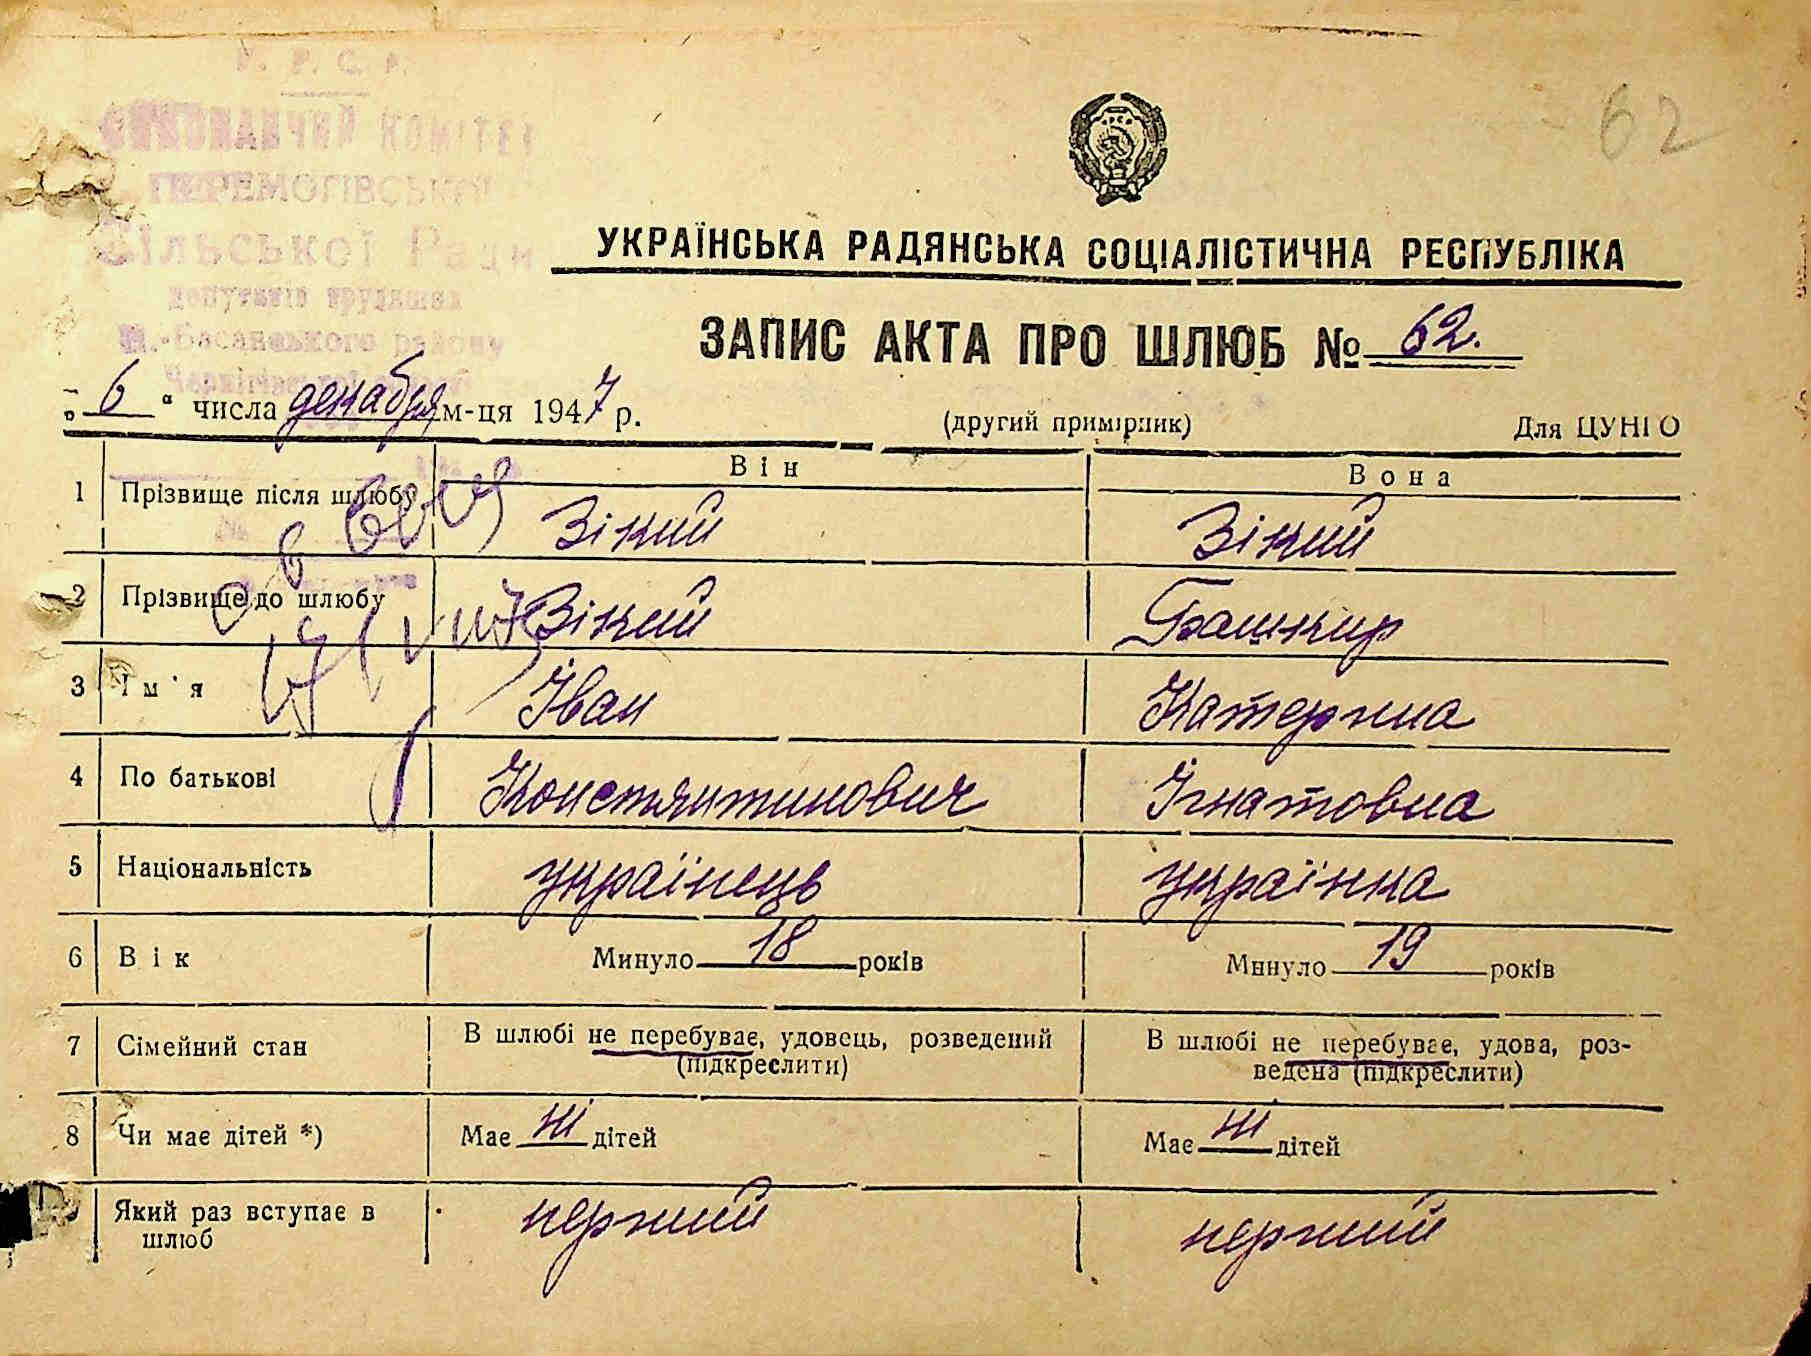 У. Р. С. Р.
ВИКОНАВЧИЙ КОМІТЕТ
ПЕРЕМОГІВСЬКИЙ
Сільської Ради
депутатів трудящих
Н.-Басанського району
Чернігівської
62
УКРАЇНСЬКА РАДЯНСЬКА СОЦІАЛІСТИЧНА РЕСПУБЛІКА
ЗАПИС АКТА ПРО ШЛЮБ № 62.
„ 6 “ числа декабря м-ця 1947 р.
(другий примірник) Для ЦУНГО
Він Вона
1 Прізвище після шлюбу Зікий Зікий
2 Прізвище до шлюбу Зікий Башкир
3 Ім'я Іван Катерина
4 По батькові Констянтинович Ігнатовна
5 Національність українець українка
6 Вік Минуло 18 років Минуло 19 років
7 Сімейний стан В шлюбі не перебуває, удовець, розведений В шлюбі не перебуває, удова, роз-
(підкреслити) ведена (підкреслити)
8 Чи має дітей *) Має ні дітей Має ні дітей
Який раз вступає в перший перший
шлюб